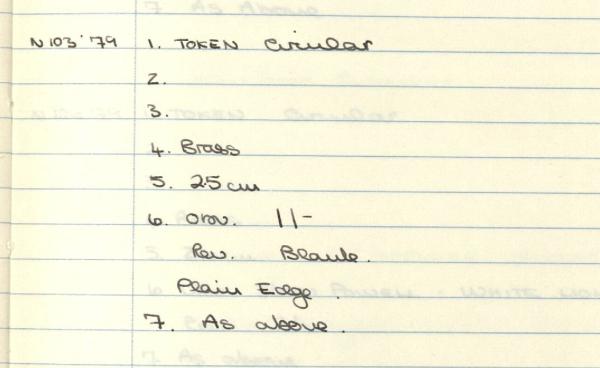 N103'79 1. TOKEN Circular
2.
3.
4. Brass
5. 25 cm
6. Obv. 11-
Rev. Blank.
Plain Edge.
7. As above.